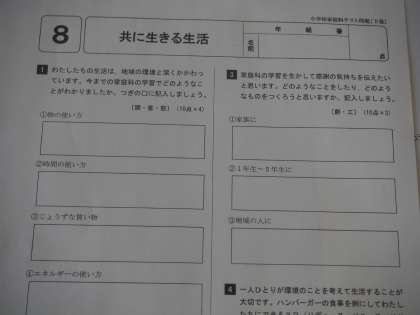 小学校家庭科テスト問題【B版】
8
共に生きる生活
年 組 番
名前
点
1 わたしたちの生活は、地域の環境と深くかかわっ
ています。今までの家庭科の学習でどのようなこ
とがわかりましたか。つぎの口に記入しましょう。
(10点×4)
①物の使い方
②時間の使い方
③じょうずな買い物
④エネルギーの使い方
3 家庭科の学習を生かして感謝の気持ちを伝えたい
と思います。どのようなことをしたり、どのよう
なものをつくろうと思いますか。記入しましょう。
(10点×3)
①家族に
②1年生~5年生に
③地域の人に
4 一人ひとりが環境のことを考えて生活することが
大切です。ハンバーガーの食事を例にしてわたし